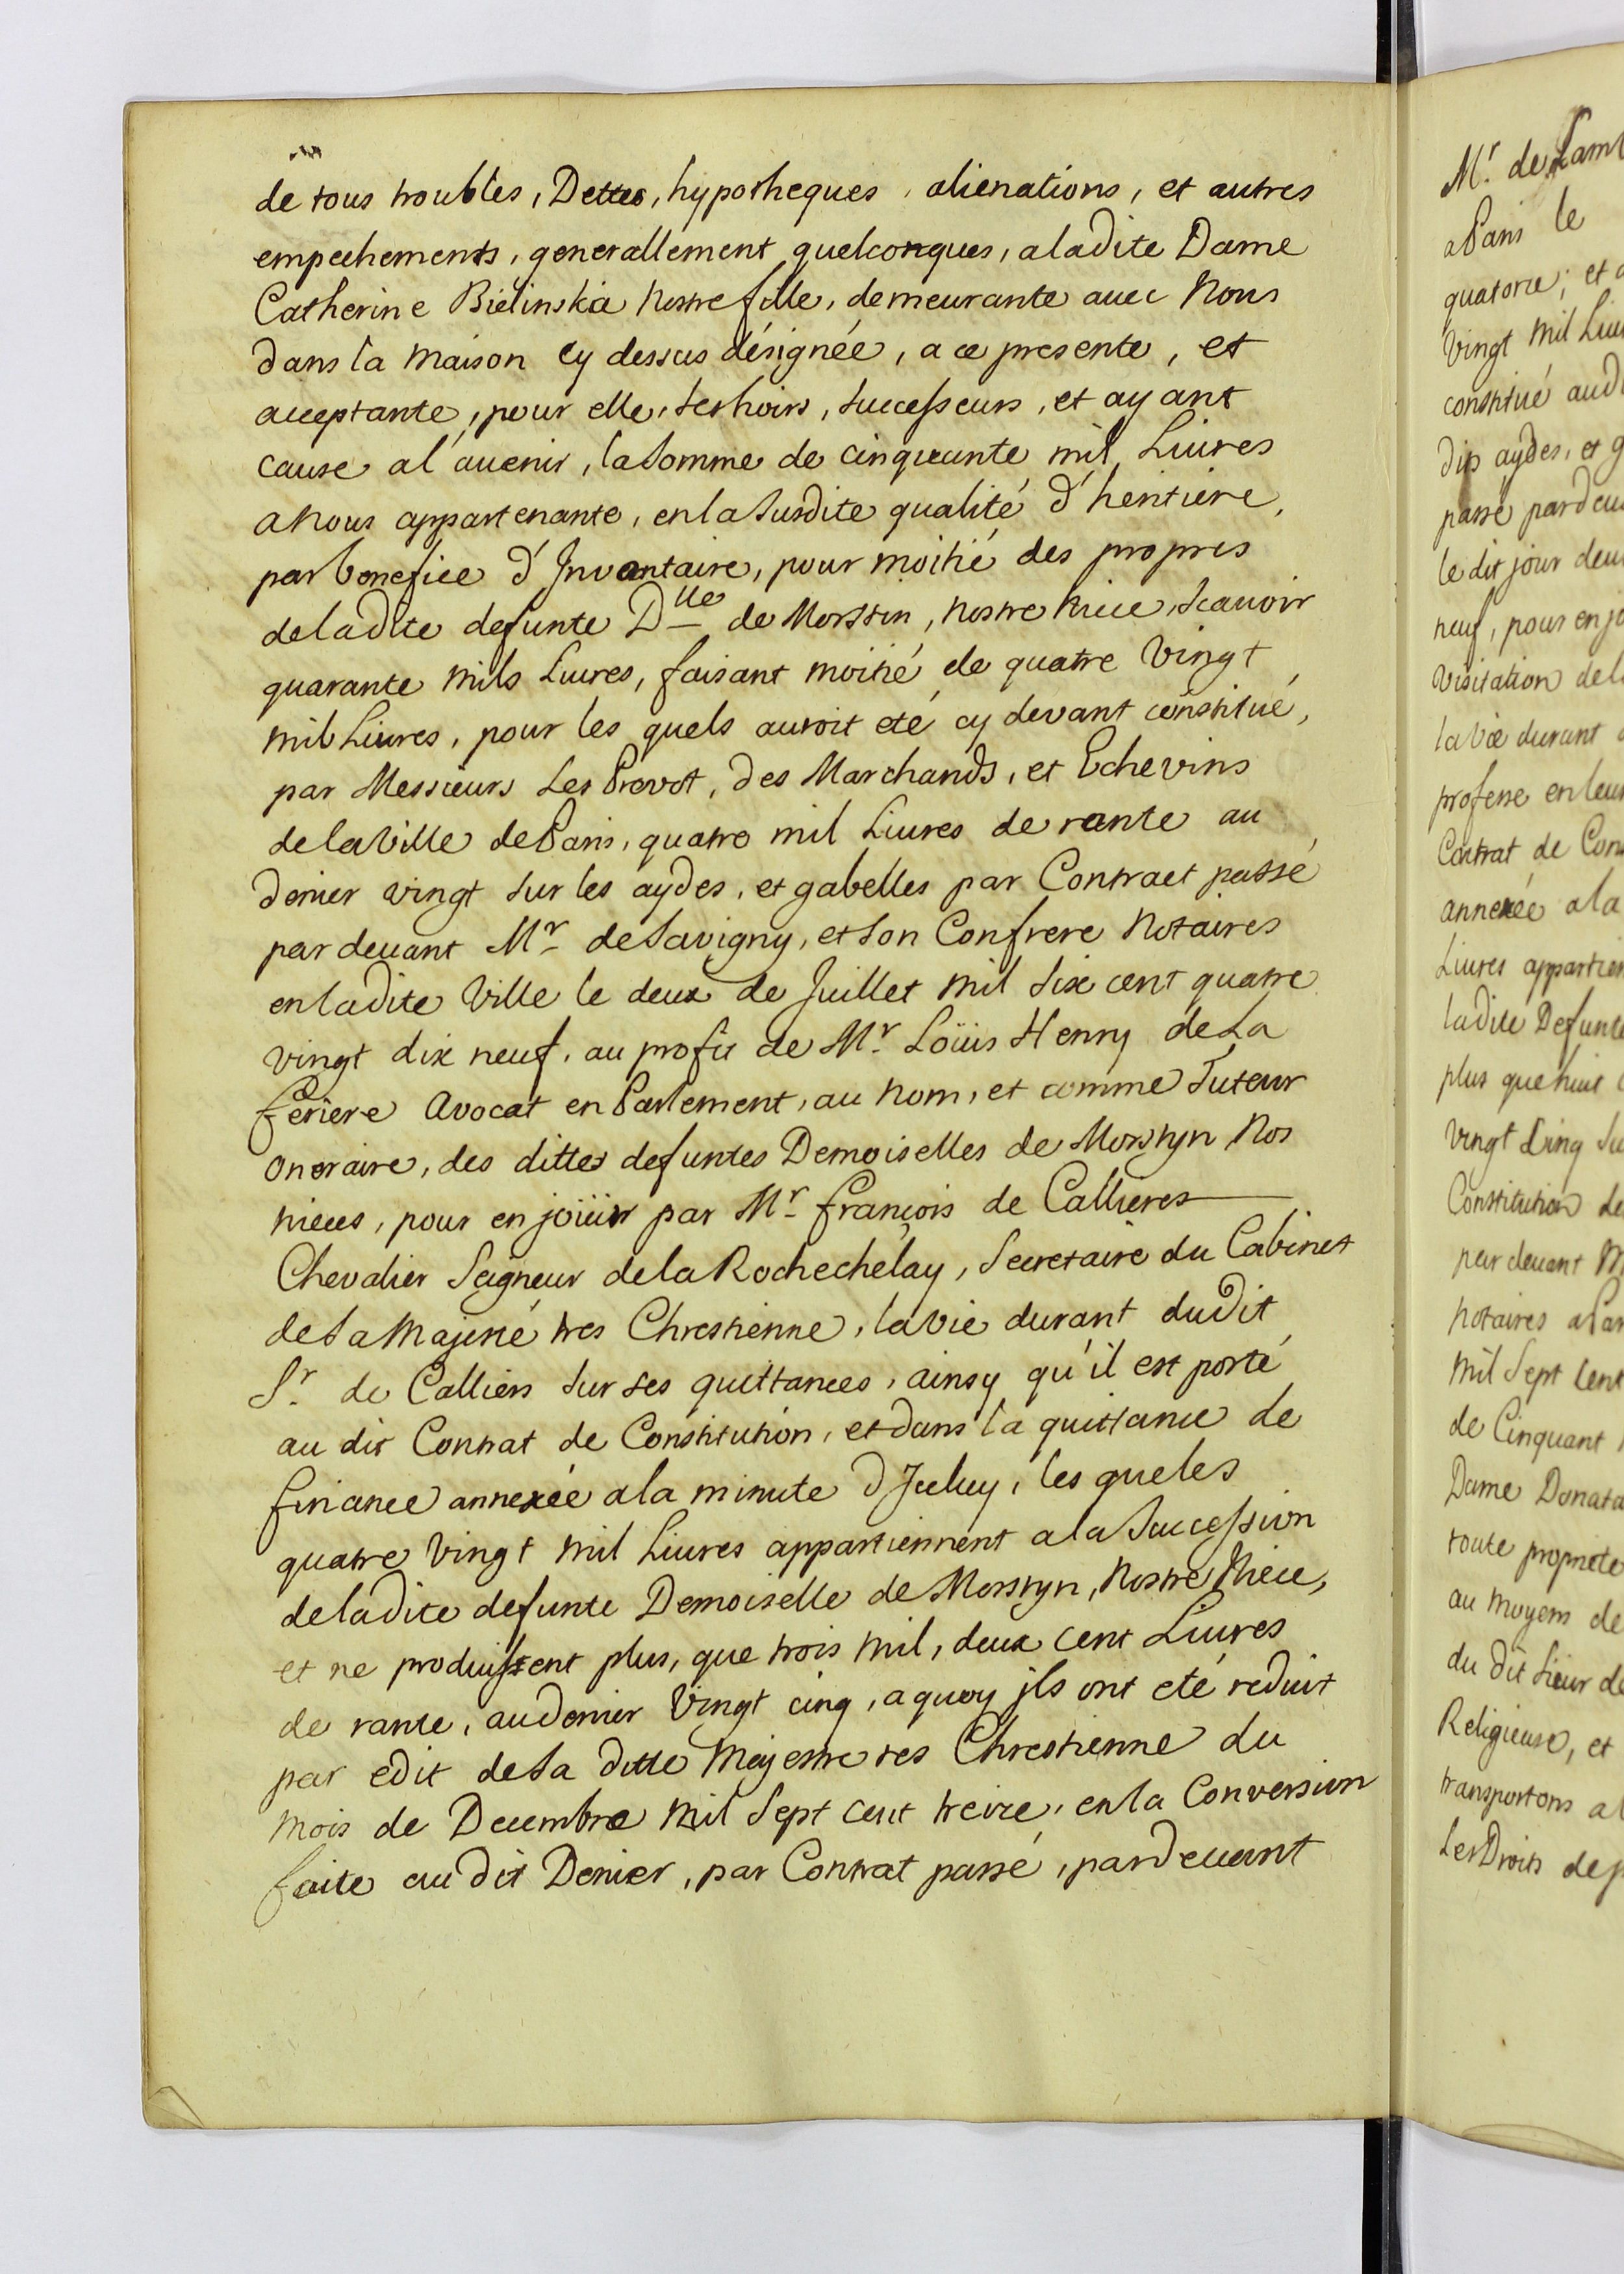 de tous troubles, Dettes, hypotheques, alienations, et autres
empechements, generallement quelconques, a ladite Dame
Catherine Bielinskia Nostre fille, demeurante avec Nous
dans la maison cy dessus désignée, a ce presente, et
acceptante, pour elle, ses hoirs, successeurs, et ayant
cause al'auenir, la Somme de cinquante mil Liures
a nous appartenante, en la Susdite qualité d'heritiere,
par benefice d'Inventaire, pour moitié des propres
de ladite defunte Dlle de Morstin, nostre Niece, Scauoir
quarante mils Liures, faisant moitié de quatre Vingt
mil Liures, pour les quels auroit eté cy devant constitué,
par Messieurs Les Prevot, des Marchands, et Echevins
de la Ville de Paris, quatre mil Liures de rante au
denier vingt Sur les aydes, et gabelles par Contract passé
par deuant Mr de Savigny, et Son Confrere Notaires
en ladite Ville le deux de Juillet mil Six cent quatre
vingt dix neuf, au profit de Mr. Loüis Henry de La
feriere Avocat en Parlement, au nom, et comme Tuteur
oneraire, des dittes defuntes Demoiselles de Morstyn Nos
nieces, pour en joüiir par Mr. françois de Callieres
Chevalier Seigneur de la Rochechelay, Secretaire du Cabinet
de Sa Majesté tres Chrestienne, la vie durant dudit
Sr. de Calliers Sur ses quittances, ainsy qu'il est porté
au dit Contrat de Constitution, et dans la quittance de
finance annexée a la minute d'Jceluy, les queles
quatre Vingt mil Liures appartiennent a la Succession
de ladite defunte Demoiselle de Morstyn, Nostre Niece,
et ne produissent plus, que trois mil, deux cent Liures
de rante, au denier Vingt cinq, a quoy jls ont eté reduit
par edit de Sa ditte Majestre tres Chrestienne du
mois de Decembre mil Sept cent treize, en la Conversion
faite au dit Denier, par Contrat passé, pardeuant
Mr. de Lam
a Paris le
quatorze, et
Vingt mil Liu
constitué aud
dis aydes, et g
passé pardeu
le dit jour deu
neuf, pour en jo
Visitation de l
la vie durant
professe en leur
Contrat de Con
annexée a la
Liures appartien
ladite Defunte
plus que huit
Vingt Cinq Su
Constitution de
par deuant M
Notaires a Par
mil Sept cent
de Cinquant
Dame Donata
toute propriete
au moyens de
du dit Sieur de
Religieuse, et
transportons a
Les Droits de p